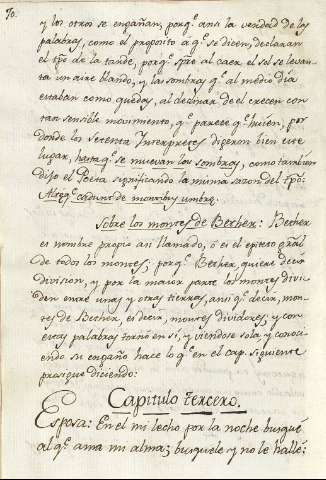 70.
y los otros se engañan, porq.e ansi la verdad de las
palabras, como el proposito a q.e se dicen, declaran
el tp̃o de la tarde, porq.e spre al caer el sol se levan
ta un aire blando, y las sombras q.e al medio dia
estaban como quedas, al declinar de el crecen con
tan sensible movimiento, q.e parece q.e huien, por
donde los Setenta Interpretes dijeron bien este
lugar, hasta q.e se muevan las sombras, como tambien
dijo el Poeta significando la misma sazon del tp̃o:
cadunt de montibus umbre.
Sobre los montes de Bether: Bether
es nombre propio asi llamado, ó es el epiteto grãl
de todos los montes; porq.e Bether, quiere decir
division, y por la maior parte los montes divi
den entre unas y otras tierras, ansi q.e decir, mon
tes de Bether, es decir, montes dividores; y con
estas palabras tornó en sí, y viendose sola y conoci
endo su engaño hace lo q.e en el cap. siguiente
prosigue diciendo:
Capitulo tercero.
Esposa: En el mi lecho por la noche busqué
al q.e ama mi alma; busquele y no le hallé: